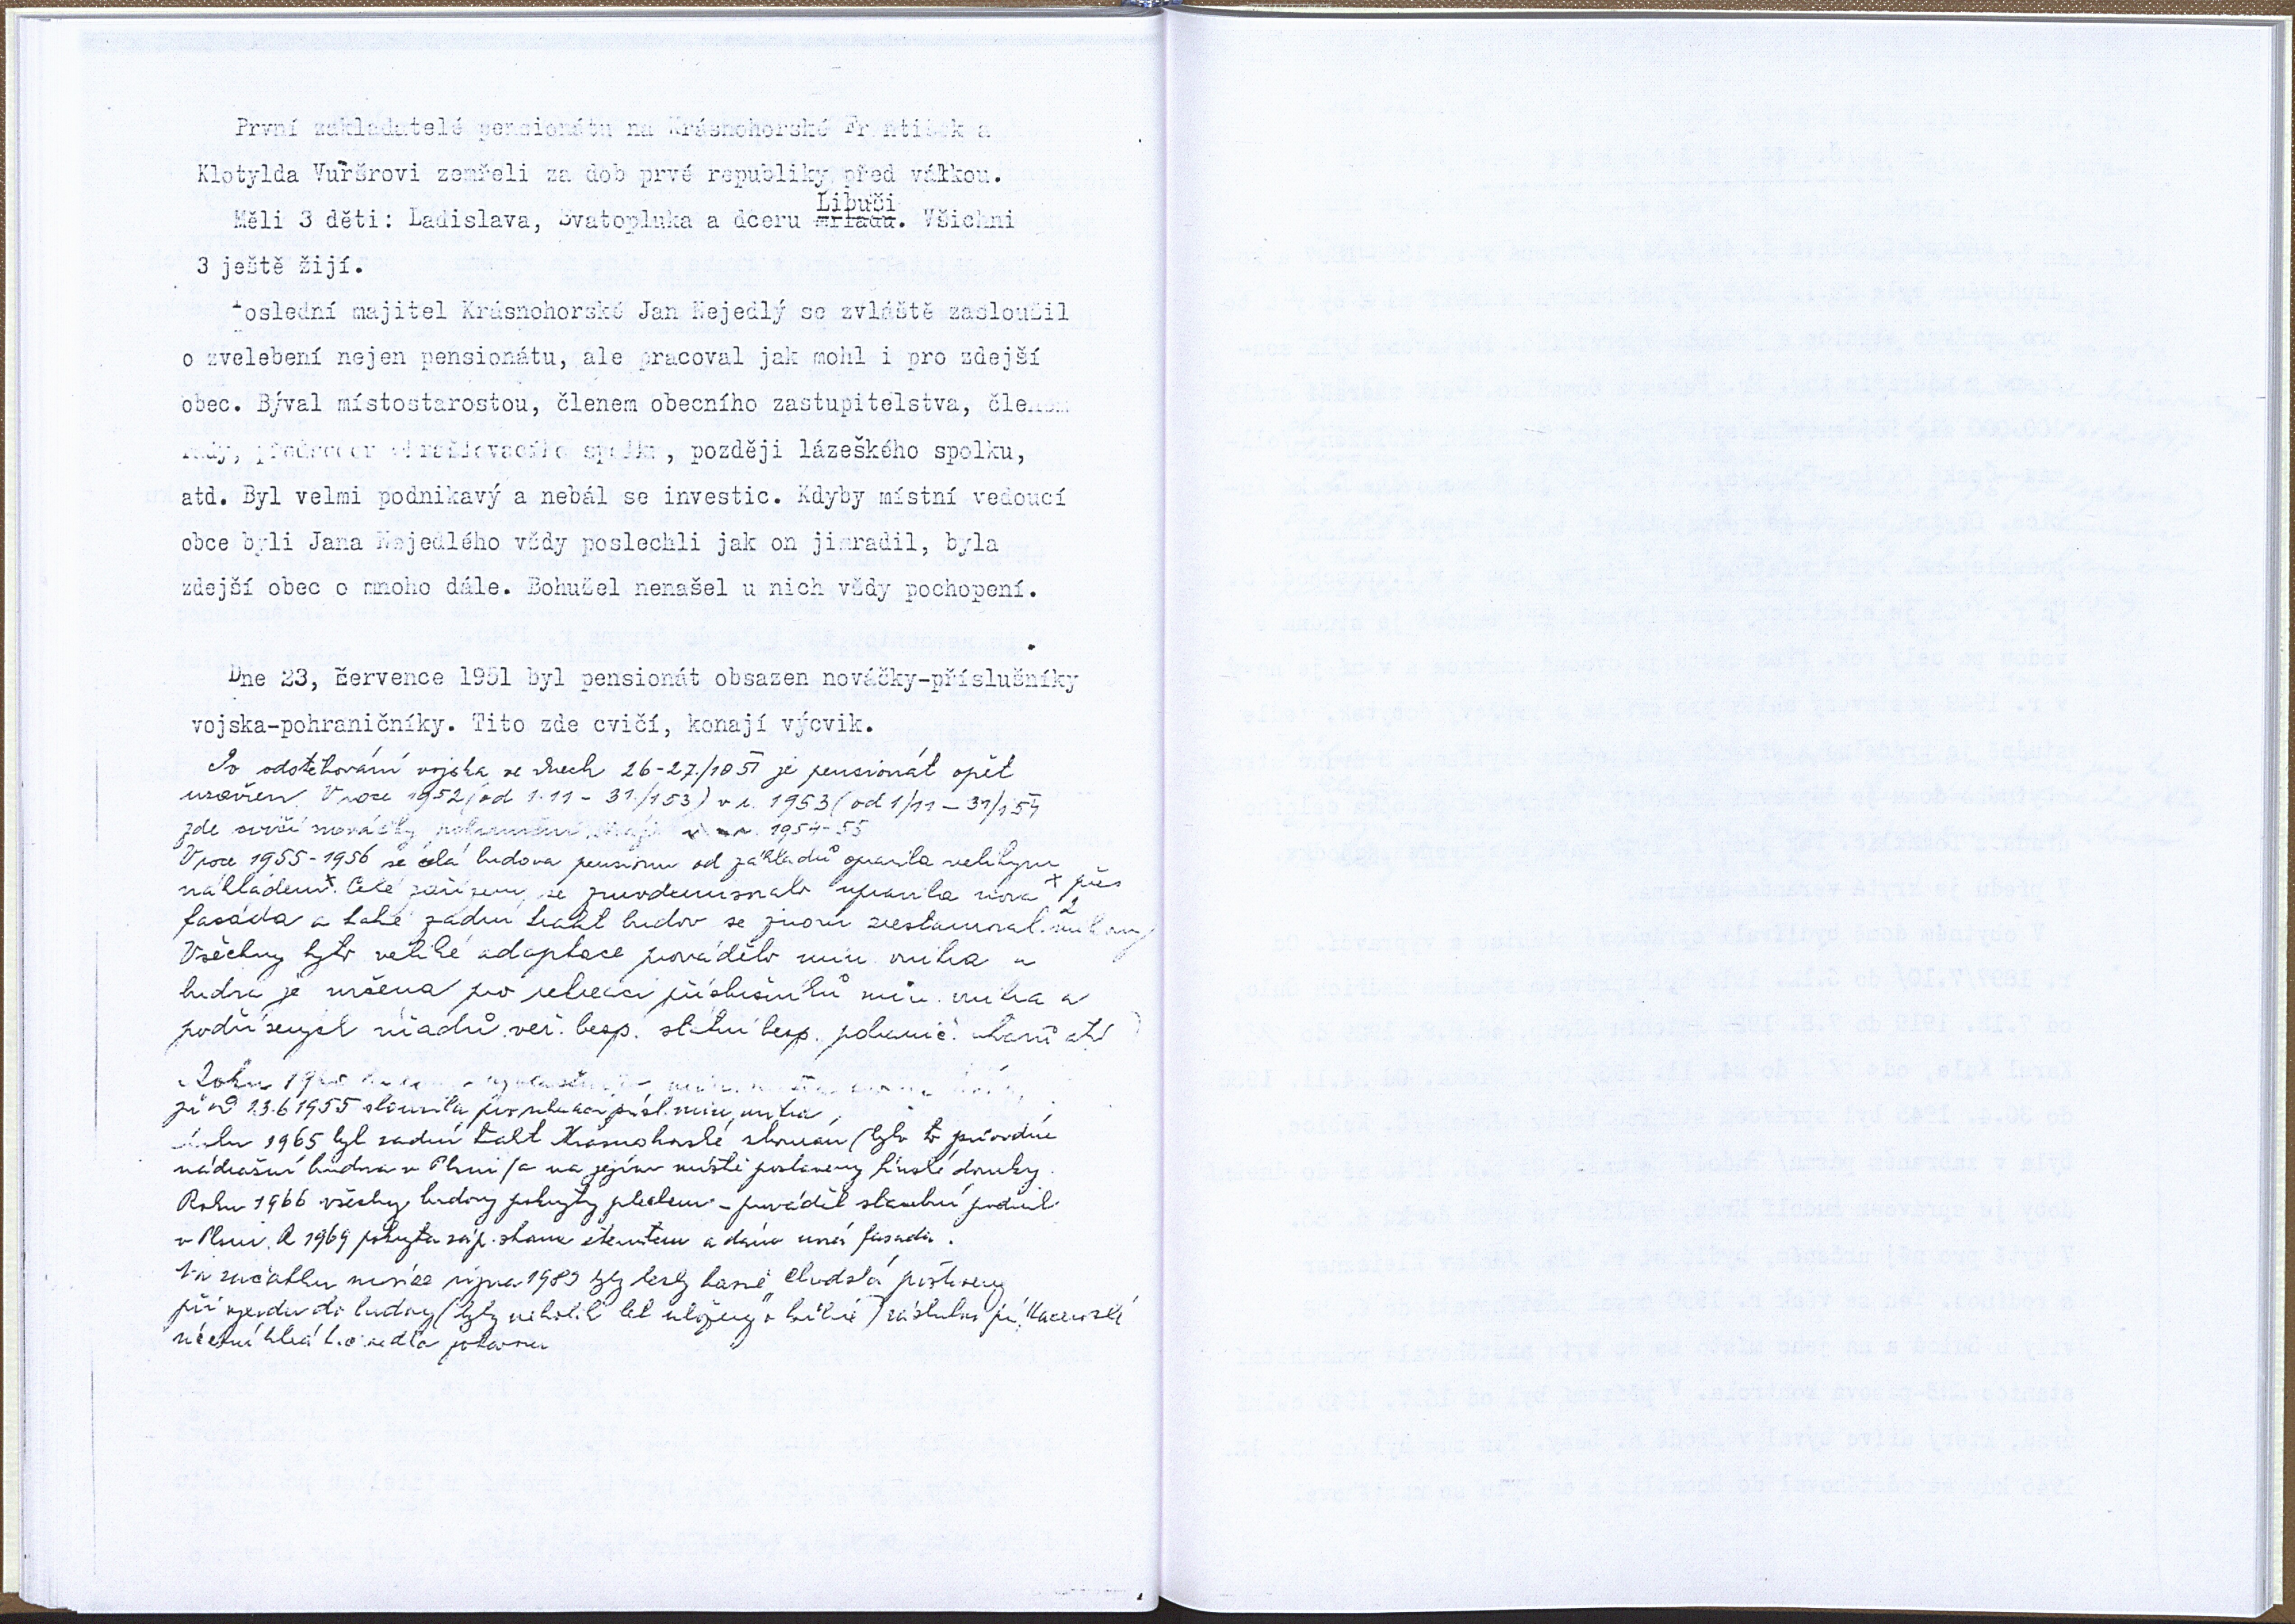 První zakladatelé pensionátu na Krásnohorské František a
Klotylda Vuršrovi zemřeli za dob prvé republiky před válkou.
Měli 3 děti: Ladislava, Svatopluka a dceru Libuši. Všichni
3 ještě žijí.
Poslední majitel Krásnohorské Jan Nejedlý se zvláště zasloužil
o zvelebení nejen pensionátu, ale pracoval jak mohl i pro zdejší
obec. Býval místostarostou, členem obecního zastupitelstva, členem
rady, předsedou okrašlovacího spolku, později lázeškého spolku,
atd. Byl velmi podnikavý a nebál se investic. Kdyby místní vedoucí
obce byli Jana Nejedlého vždy poslechli jak on jimradil, byla
zdejší obec o mnoho dále. Bohužel nenašel u nich vždy pochopení.
Dne 23, července 1951 byl pensionát obsazen nováčky-příslušníky
vojska-pohraničníky. Tito zde cvičí, konají výcvik.
Po odstěhování vojska ve dnech 26-27./10 51 je pensionát opět
uzavřen. V roce 1952 (od 1.11 - 31./1 53) v r. 1953 (od 1/11 - 31/1 54
zde cvičí nováčky 1954-55
V roce 1955-1956 se celá budova pensionu od základů opravila velikým
nákladem x Celé zařízení se zmodernisovalo upravila nová x přes
fasáda a také zadní trakt budov se znovu zrestauroval. 2 miliony
Všechny tyto veliké adaptace provádělo min. vnitra a
budova je určena pro rekreaci příslušníků min. vnitra a
podřízených úřadů veř. bezp. státní bezp. pohranič. stráž atd
Roku
již od 13.6 1955 sloužila pro rekreaci přísl. min. vnitra,
Roku 1965 byl zadní trakt Krásnohorské zbourán (bylo to původně
nádražní budova v Plzni / a na jejím místě postaveny finské domky.
Roku 1966 všechny budovy pokryty plechem - prováděl stavební podnik
v Plzni. R 1969 pokryta záp. strana eternitem a dána nová fasáda.
Na začátku měsíce října 1989 byly
při vjezdu do budovy (byly několik let uloženy v kůlně)